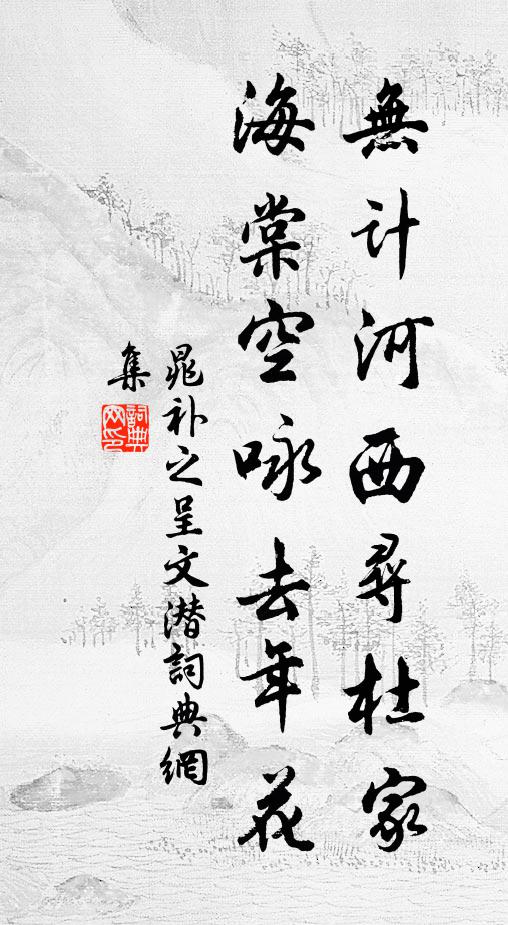 無计河西尋杜家
海棠空咏去年花
晁补之呈文潜詞典網
集
詞典网印